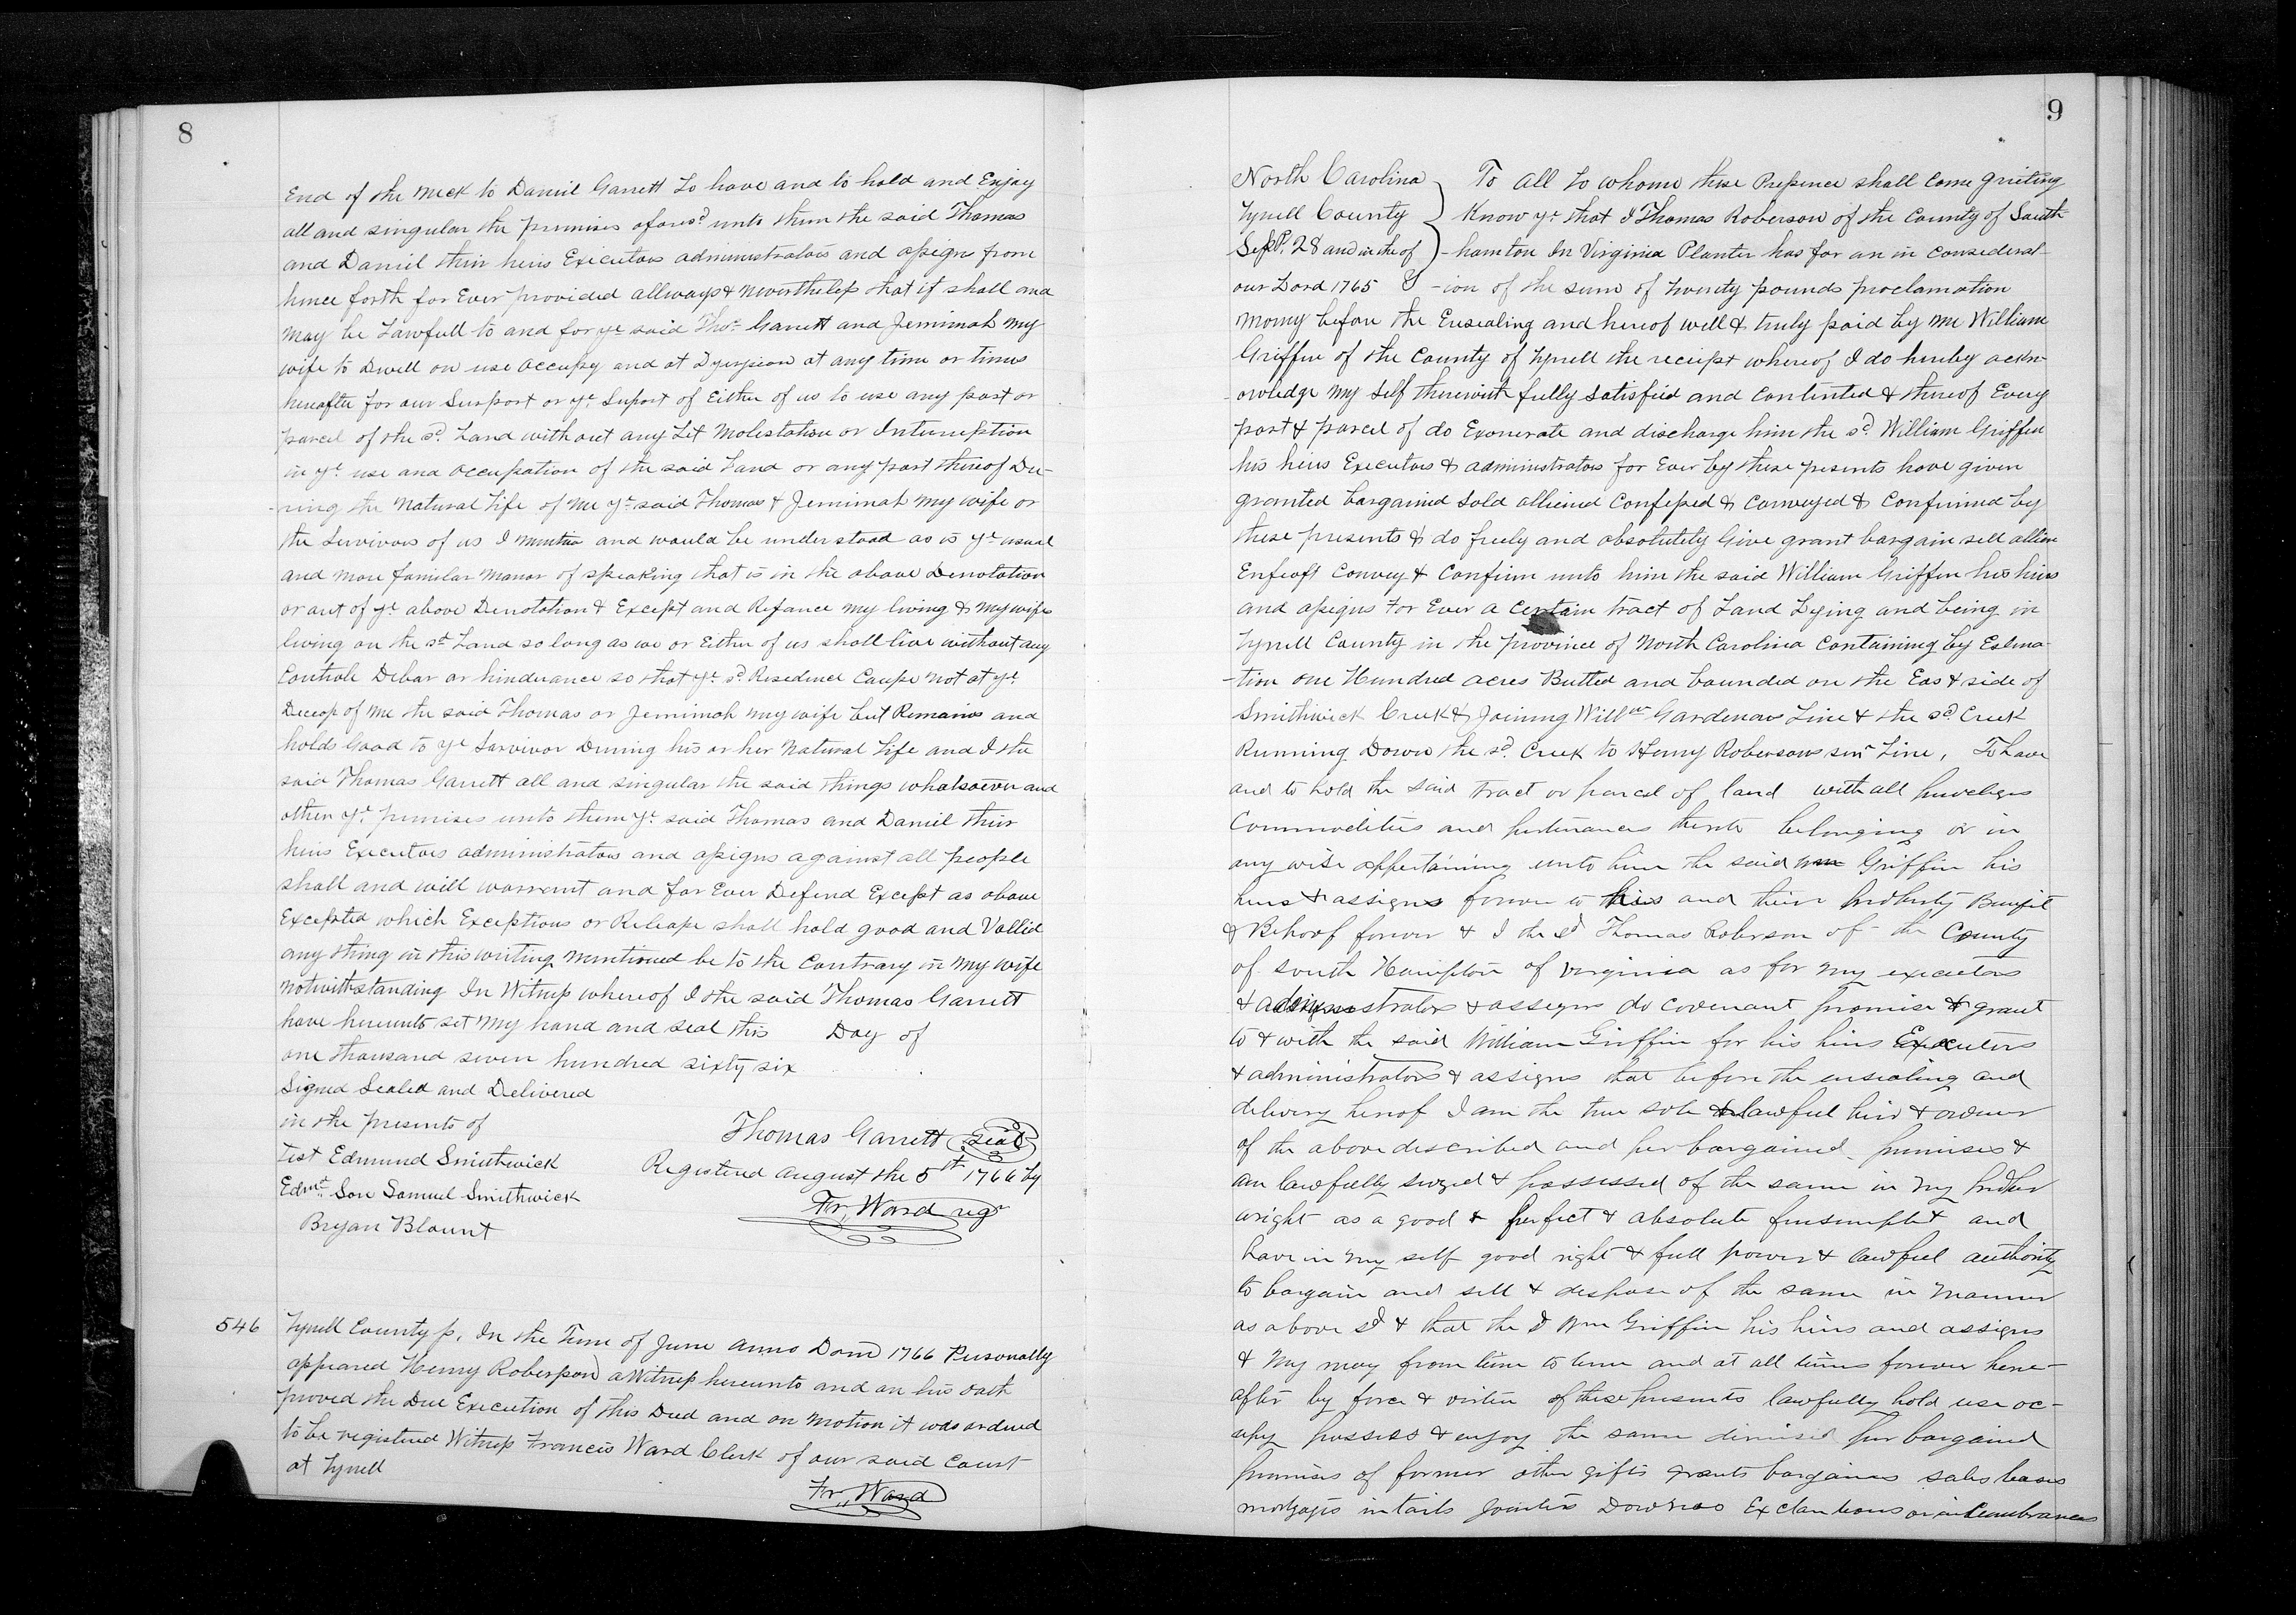 8
End of the neck to Daniel Garrett To have and to hold and Enjoy
all and singular the premises afores.d unto them the said Thomas
and Daniel thier heirs Executors administrators and assigns from
hence forth for Ever provided allways & nevertheless that it shall and
may be Lawfull to and for y.e said Tho.s Garrett and Jemimah my
wife to Dwell on use occupy and at Dyversion at any time or times
hereafter for our Surport or y.e Suport of Either of us to use any part or
parcel of the s.d Land without any Let Molestation or Interruption
in y.e use and occupation of the said Land or any part thereof Du-
-ring the Natural Life of me y.e said Thomas & Jemimah my wife or
the Survivors of us I mention and would be understood as is y.e usual
and more familar manor of speaking that is in the above Denotation
or out of y.e above Denotation & Except and Refance my living & my wifes
living on the s.d Land so long as we or Either of us shall live without any
Controle Debar or hinderance so that y.e s.d Residence Cause not at y.e
Deceas of me the said Thomas or Jemimah my wife but Remains and
holds Good to y.e Survivor During his or her Natural Life and I the
said Thomas Garrett all and singular the said things whatsoever and
other y.e premises unto them y.e said Thomas and Daniel thier
heirs Executors administrators and assigns against all people
shall and will warrant and for Ever Defend Except as above
Excepted which Exceptions or Release shall hold good and Vallid
any thing in this writing mentioned be to the Contrary in my wife
notwithstanding In Witness whereof I the said Thomas Garrett
have hereunto set my hand and seal this Day of
one thousand seven hundred sixty six
Signed Sealed and Delivered
in the presents of
Thomas Garrett Seal
Test Edmund Smithwick
Registered August the 5th 1766 by
Edm.d Son Samuel Smithwick
Fr,, Ward regr
Bryan Blount
546
Tyrell County ss. In the Time of June Anno Dom 1766 Personally
appeared Henry Roberson a Witness hereunto and on his oath
proved the Due Execution of this Deed and on motion it was ordered
to be registered Witness Francis Ward Clerk of our said Court
at Tyrell
Fr,, Ward
9
North Carolina To All to whome these Presence shall Come Grieting
Tyrell County Know y.e that I Thomas Roberson of the County of South-
Sept. 28 and in the of -hamton In Virginia Planter has for an in Consederat-
our Lord 1765 -ion of the sum of twenty pounds proclamation
money before the Ensealing and hereof well & truly paid by me William
Griffin of the County of Tyrell the receipt whereof I do hereby ackn-
-owledge my self therewith fully satisfied and Contented & thereof Every
part & parcel of do Exonerate and discharge him the s.d William Griffin
his heirs Executors & administrators for Ever by these presents have given
granted bargained sold alliened Confessed & Conveyed & Confirmed by
these presents & do freely and absolutely Give grant bargain sell allien
Enfeoft Convey & Confirm unto him the said William Griffin his heirs
and assigns for Ever a certain tract of Land Lying and being in
Tyrell County in the province of North Carolina Containing by Estma-
-tion one Hundred acres Butted and bounded on the East side of
Smithwick Creek & Joining Willm Gardenars Line & the s.d Creek
Running Down the s.d Creek to Henry Robersons senr Line, To have
and to hold the said tract or parcel of land with all priveliges
Commodities and pertinances thereto belonging or in
any wise appertaining unto him the said Wm Griffin his
heirs & assigns forever to his and their property Benifit
& Behoof forever & I the sd Thomas Roberson of the County
of South Hampton of Virginia as for my executors
& administrators & assigns do covenant promise & grant
to & with the said William Griffin for his heirs Executors
& administrators & assigns that before the ensealing and
delivery hereof I am the true sole & lawful heir & owner
of the above described and per bargained premises &
am lawfully seized & possessed of the same in my proper
wright as a good & perfect & absolute feesimplet and
have in my self good right & full power & lawful authority
to bargain and sell & dispose of the same in manner
as above sd & that the sd Wm Griffin his heirs and assigns
& my may from time to time and at all times forever here-
after by force & virtue of these presents lawfully hold use oc-
upy possess & enjoy the same dimised per bargained
premises of former other gifts grants bargains sales leases
mortgages intails jointers Dowries Exclanteons or incumbrances